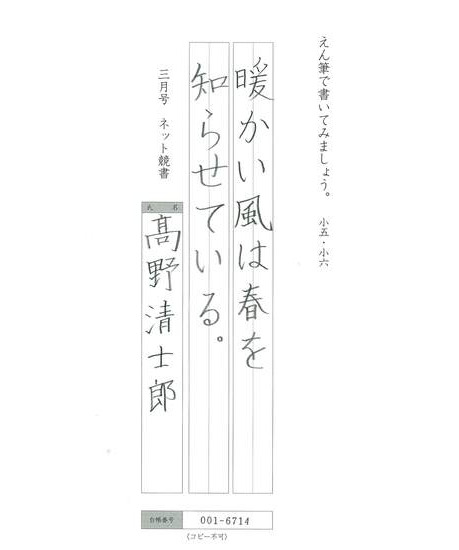 えん筆で書いてみましょう。 小五・小六
暖かい風は春を
知らせている。
三月号 ネット競書
氏名
髙野清士郎
台帳番号 001-6714
（コピー不可）